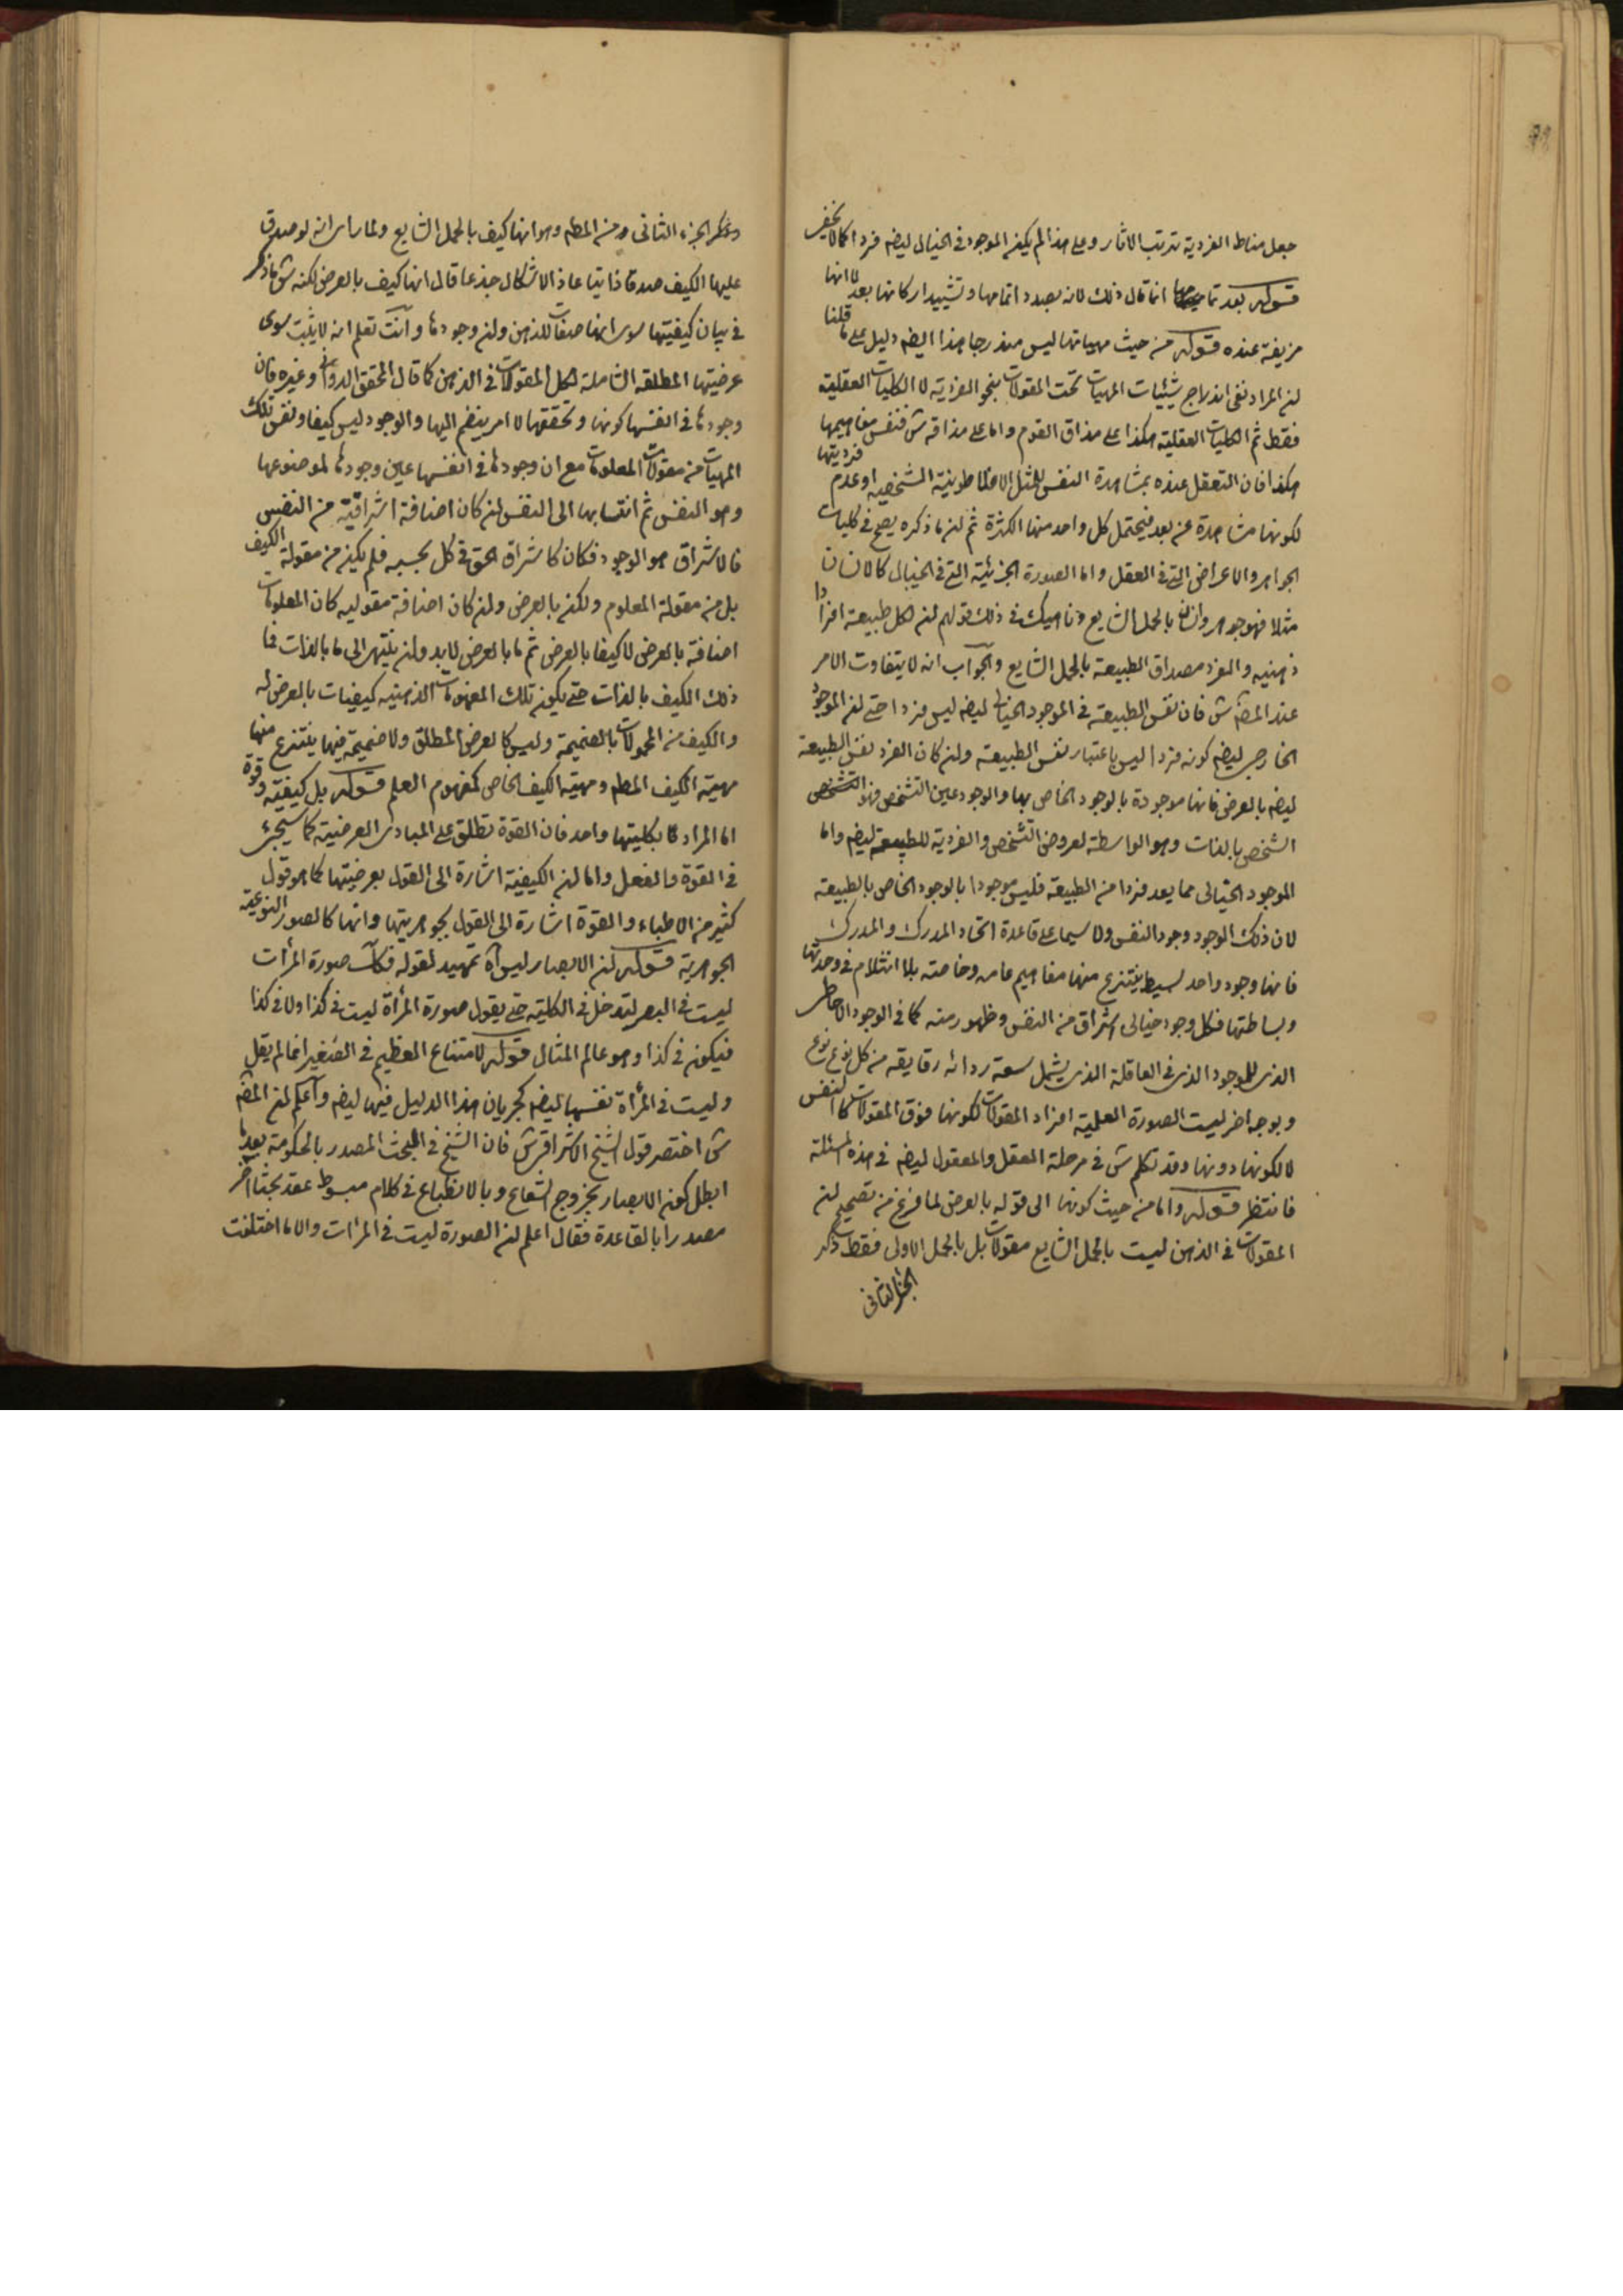 جعل مناط الفردية ترتب الاثار وعلى هذا لم يكن الموجود فى الخيال ايضا فردا كما لا يخفى
قوله بعد تمامها انما قال ذلك لانه بصدد اتمامها وتشييد اركانها بعد لا انها
مزيفة عنده قوله من حيث مهياتها ليس مندرجا هذا ايضا دليل على ما قلنا
ان المراد نفى اندراج شيئيات المهيات تحت المقولات بنحو الفردية لا الكليات العقلية
فقط ثم الكليات العقلية هكذا على مذاق القوم واما على مذاقه ش فنفس مفاهيمها
هكذا فان التعقل عنده بمشاهدة النفس للمثل الافلاطونية المتشخصة او عدم فرديتها
لكونها مشاهدة عن بعد فيحتمل كل واحد منها الكثرة ثم ان ما ذكره يصح فى كليات
الجواهر والاعراض التى فى العقل واما الصورة الجزئية التى فى الخيال كالانسان
مثلا فهو جوهر وانسان بالحمل الشايع وناهيك فى ذلك قولهم ان لكل طبيعة افرادا
ذهنيه والفرد مصداق الطبيعة بالحمل الشايع والجواب انه لا يتفاوت الامر
عند المص ش فان نفس الطبيعة فى الموجود الخيالى ايضا ليس فردا حتى ان الموجود
الخارجى ايضا كونه فردا ليس باعتبار نفس الطبيعة وان كان الفرد نفس الطبيعة
ايضا بالعرض فانها موجودة بالوجود الخاص بها والوجود عين التشخص فهو التشخص
الشخص بالذات وهو الواسطة لعروض التشخص والفردية للطبيعة ايضا واما
الموجود الخيالى مما يعد فردا من الطبيعة فليس موجودا بالوجود الخاص بالطبيعة
لان ذلك الوجود وجود النفس ولا سيما على قاعدة اتحاد المدرك والمدرك
فانها وجود واحد بسيط ينتزع منها مفاهيم عامه وخاصته بلا انثلام فى وحدتها
وبساطتها فكل وجود خيالى اشراق من النفس وظهور منه كما فى الوجود الاحاطى
الذى للوجود الذى فى العاقلة الذى يشمل سعة ردائه رقايقه من كل نوع نوع
وبوجه اخر ليست الصورة العلمية افراد المقولات لكونها فوق المقولات كالنفس
لا لكونها دونها وقد تكلم ش فى مرحلة العقل والمعقول ايضا فى هذه المسئلة
فانتظر قوله واما من حيث كونها الى قوله بالعرض لما فرغ من تصحيح ان
المقولات فى الذهن ليست بالحمل الشايع مقولات بل بالحمل الاولى فقط ذكر
الجزء الثانى
وذكر الجزء الثانى من المطم وهو انها كيف بالحمل الشايع ولما راى انه لو صدق
عليها الكيف صدقا ذاتيا عاد الاشكال جذعا قال انها كيف بالعرض لكنه ش ما ذكر
فى بيان كيفيتها سوى انها صفات للذهن وان وجودها وانت تعلم انه لا يثبت سوى
عرضيتها المطلقه الشاملة لكل المقولات فى الذهن كما قال المحقق الدوانى وغيره فان
وجودها فى انفسها كونها وتحققها لا امر ينضم اليها والوجود ليس كيفا ونفس تلك
المهيات من مقولات المعلومات مع ان وجودها فى انفسها عين وجودها لموضوعها
وهو النفس ثم انتسابها الى النفس ان كان اضافة اشراقية من النفس
فالاشراق هو الوجود فكان كاشراق الحق فى كل بحسبه فلم يكن من مقولة الكيف
بل من مقولة المعلوم ولكن بالعرض وان كان اضافة مقوليه كان المعلومات
اضافة بالعرض لا كيفا بالعرض ثم ما بالعرض لابد وان ينتهى الى ما بالذات فما
ذلك الكيف بالذات حتى يكون تلك المفهومات الذهنيه كيفيات بالعرض له
والكيف من المحمولات بالضميمة وليس كالعرض المطلق ولا ضميمة فيها ينتزع منها
مهية الكيف المطم ومهية الكيف الخاص كمفهوم العلم قوله بل كيفية وقوة
اما المراد بكليتهما واحد فان القوة تطلق على المبادى العرضية كما سيجئ
فى القوة والفعل واما ان الكيفية اشارة الى القول بعرضيتها كما هو قول
كثير من الاطباء والقوة اشارة الى القول بجوهريتها وانها كالصور النوعية
الجوهرية قوله ان الابصار ليس آه تمهيد لقوله فكانت صورة المرأت
ليست فى البصر لتدخل فى الكلية حتى يقول صورة المرأة ليست فى كذا ولا فى كذا
فيكون فى كذا وهو عالم المثال قوله لامتناع العظيم فى الصغير انما لم يقل
وليست فى المرأة نفسها ايضا لجريان هذا الدليل فيها ايضا واعلم ان المص
ش اختصر قول الشيخ الاشراقى ش فان الشيخ فى المبحث المصدر بالحكومة بعد ما
ابطل كون الابصار بخروج الشعاع وبالانطباع فى كلام مبسوط عقد بحثا اخر
مصدرا بالقاعدة فقال اعلم ان الصورة ليست فى المرأت والا ما اختلفت